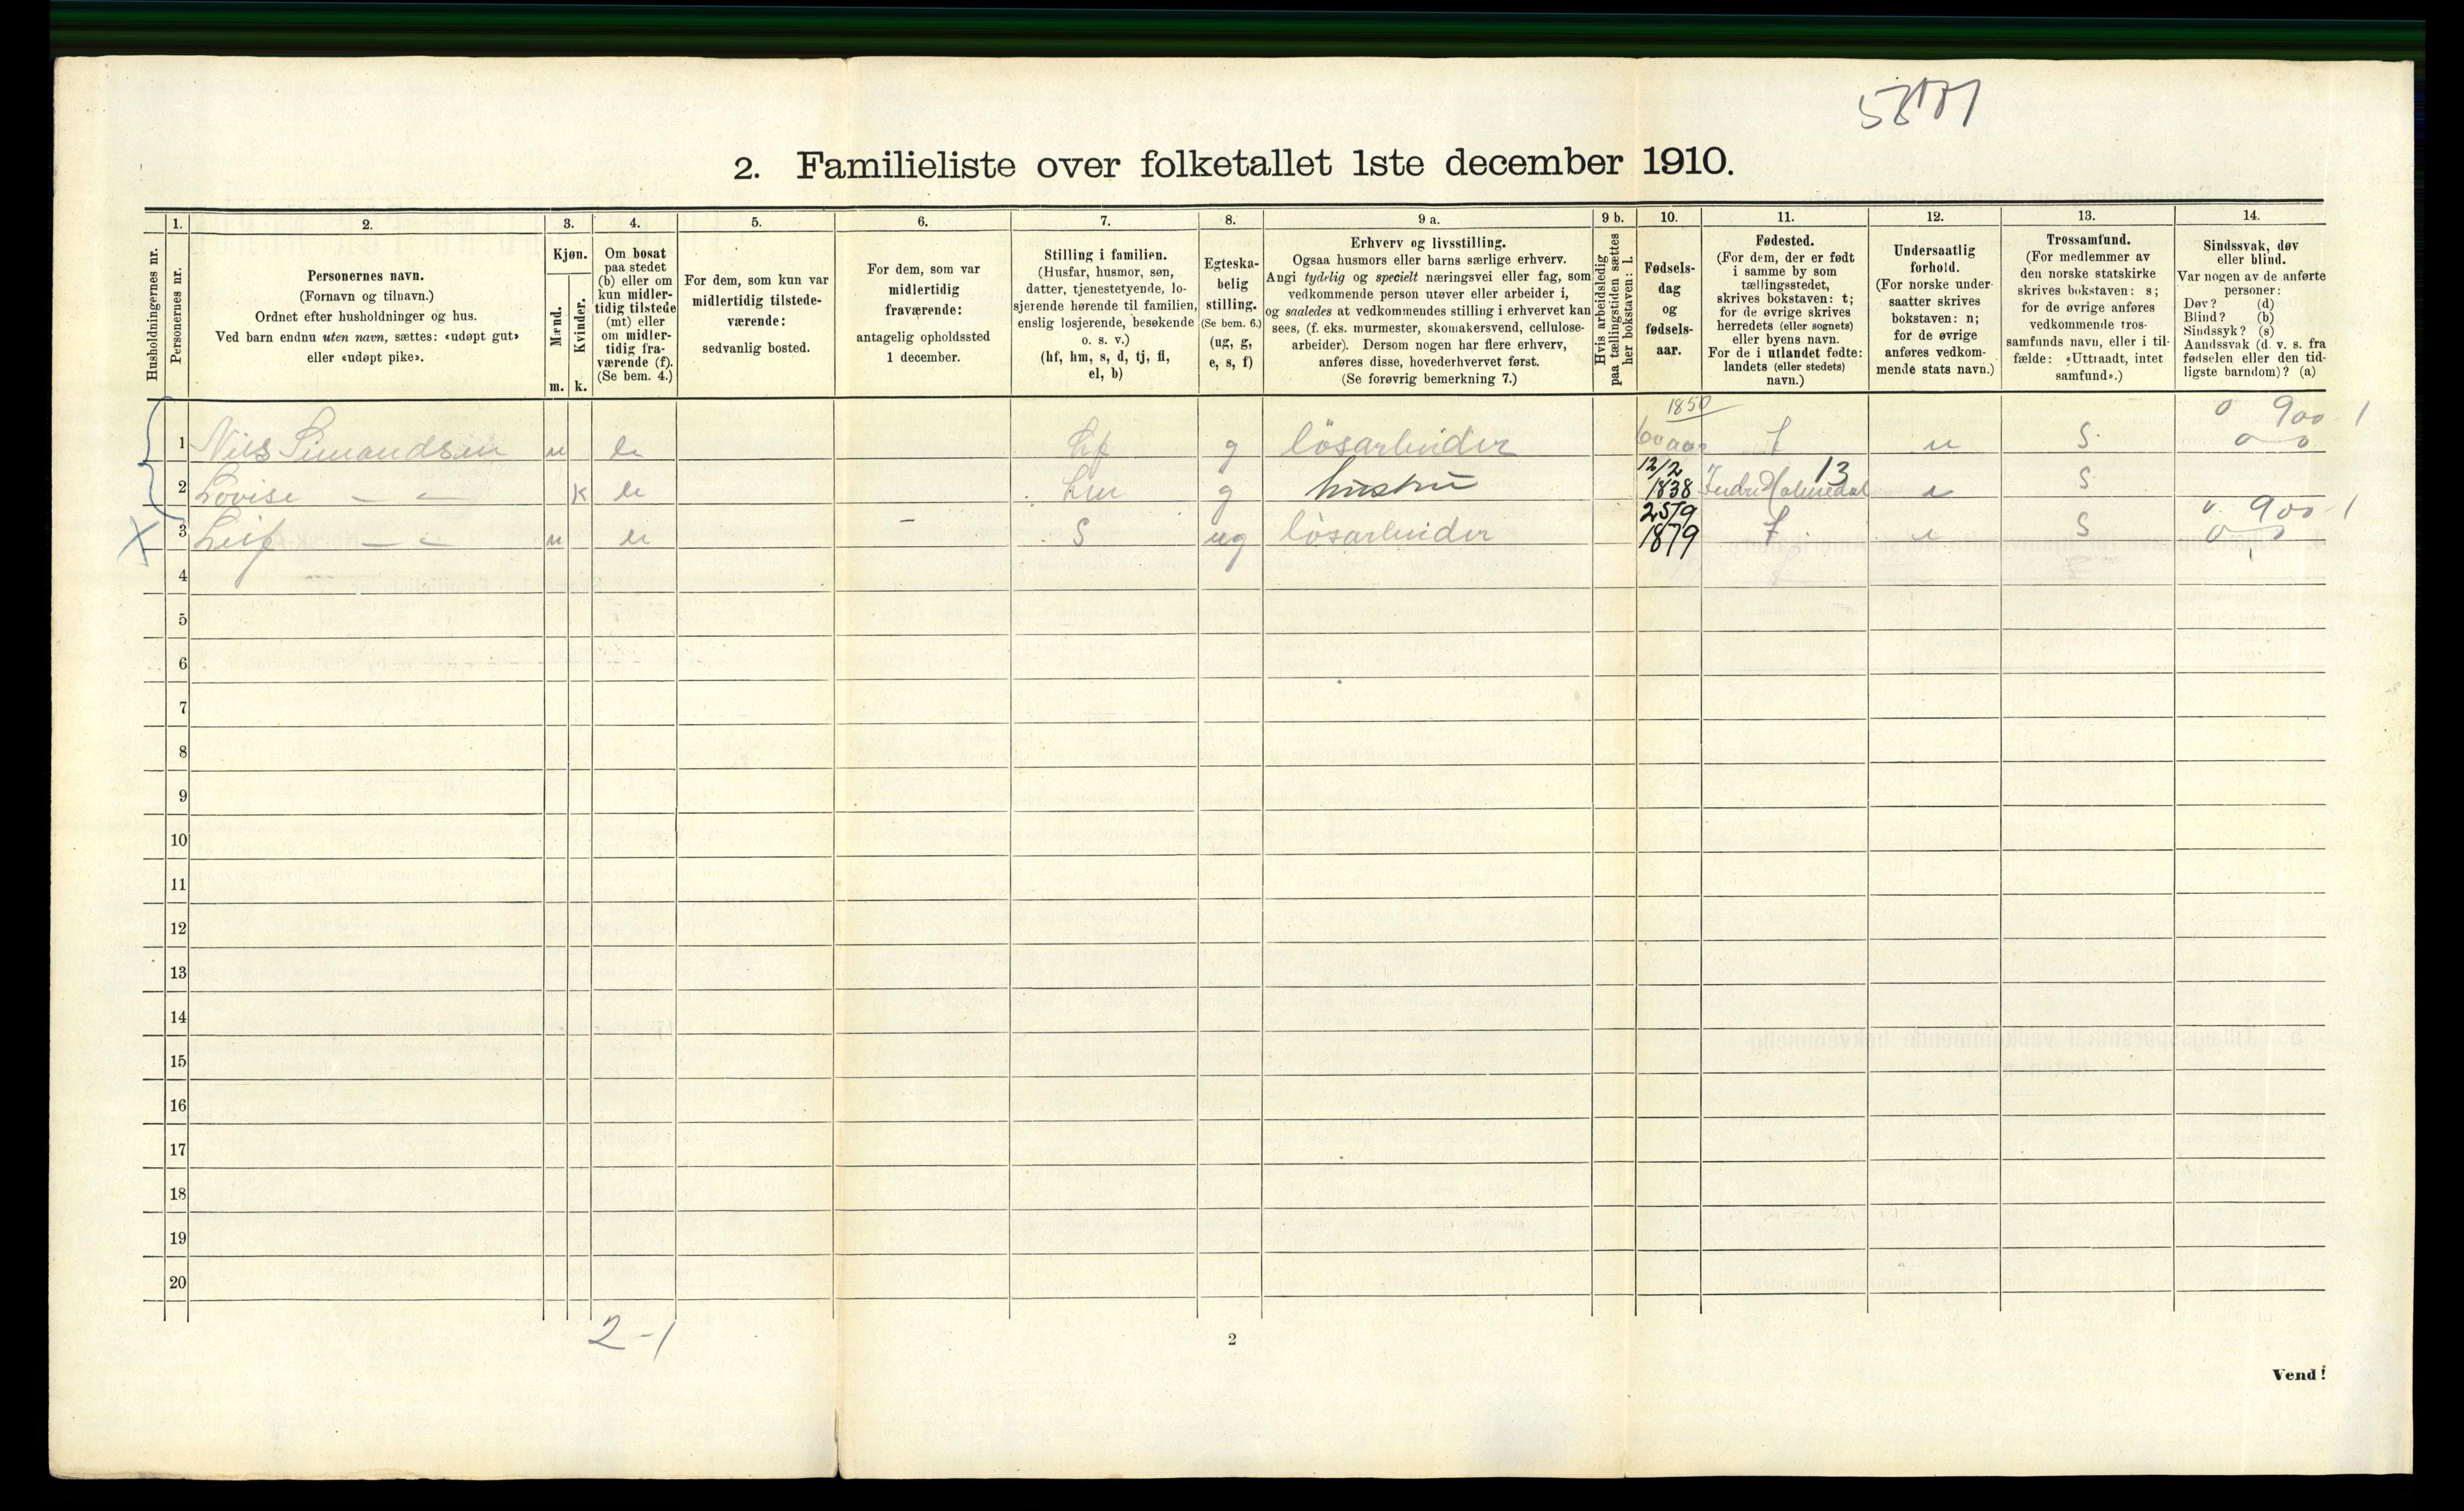 2. Familieliste over folketallet 1ste december 1910.
Husholdningernes nr.
1.
Personernes nr.
2.
Personernes navn.
(Fornavn og tilnavn.)
Ordnet efter husholdninger og hus.
Ved barn endnu uten navn, sættes: «udøpt gut»
eller «udøpt pike».
3.
Kjøn.
Mænd.
Kvinder.
m. k.
4.
Om bosat
paa stedet
(b) eller om
kun midler-
tidig tilstede
(mt) eller
om midler-
tidig fra-
værende (f).
(Se bem. 4.)
5.
For dem, som kun var
midlertidig tilstede-
værende:
sedvanlig bosted.
6.
For dem, som var
midlertidig
fraværende:
antagelig opholdssted
1 december.
7.
Stilling i familien.
(Husfar, husmor, søn,
datter, tjenestetyende, lo-
sjerende hørende til familien,
enslig losjerende, besøkende
o. s. v.)
(hf, hm, s, d, tj, fl,
el, b)
8.
Egteska-
belig
stilling.
(Se bem. 6.)
(ug, g,
e, s, f)
9 a.
Erhverv og livsstilling.
Ogsaa husmors eller barns særlige erhverv.
Angi tydelig og specielt næringsvei eller fag, som
vedkommende person utøver eller arbeider i,
og saaledes at vedkommendes stilling i erhvervet kan
sees, (f. eks. murmester, skomakersvend, cellulose-
arbeider). Dersom nogen har flere erhverv,
anføres disse, hovederhvervet først.
(Se forøvrig bemerkning 7.)
9 b.
Hvis arbeidsledig
paa tællingstiden sættes
her bokstaven: l.
10.
Fødsels-
dag
og
fødsels-
aar.
11.
Fødested.
(For dem, der er født
i samme by som
tællingsstedet,
skrives bokstaven: t;
for de øvrige skrives
herredets (eller sognets)
eller byens navn.
For de i utlandet fødte:
landets (eller stedets)
navn.)
12.
Undersaatlig
forhold.
(For norske under-
saatter skrives
bokstaven: n;
for de øvrige
anføres vedkom-
mende stats navn.)
13.
Trossamfund.
(For medlemmer av
den norske statskirke
skrives bokstaven: s;
for de øvrige anføres
vedkommende tros-
samfunds navn, eller i til-
fælde: «Uttraadt, intet
samfund».)
14.
Sindssvak, døv
eller blind.
Var nogen av de anførte
personer:
Døv? (d)
Blind? (b)
Sindssyk? (s)
Aandssvak (d. v. s. fra
fødselen eller den tid-
ligste barndom)? (a)
1850 0 900-1
1 Nils Simondsen m b hf g løsarbeider 60 aar t n S 0 0
12/2 13
2 Lovise — — k b hm g hustru 1838 Indre Holmedal n S
25/9 0. 900-1
X 3 Leif — — m b - S ug løsarbeider 1879 t n S 0 0
4
5
6
7
8
9
10
11
12
13
14
15
16
17
18
19
20
2-1
2
Vend!